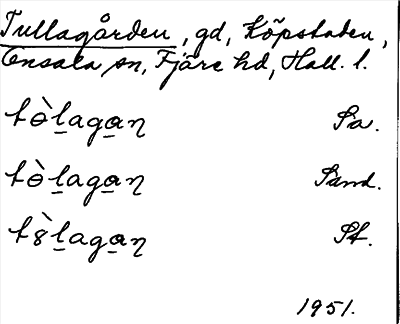 Tullagården, gd, Köpstaden,
Onsala sn, Fjäre hd, Hall. l.
tɵ̀l̲aga̲ɳ Sa.
tɵ̀l̲aga̲ɳ Sand.
t8̀l̲aga̲ɳ St.
1951.